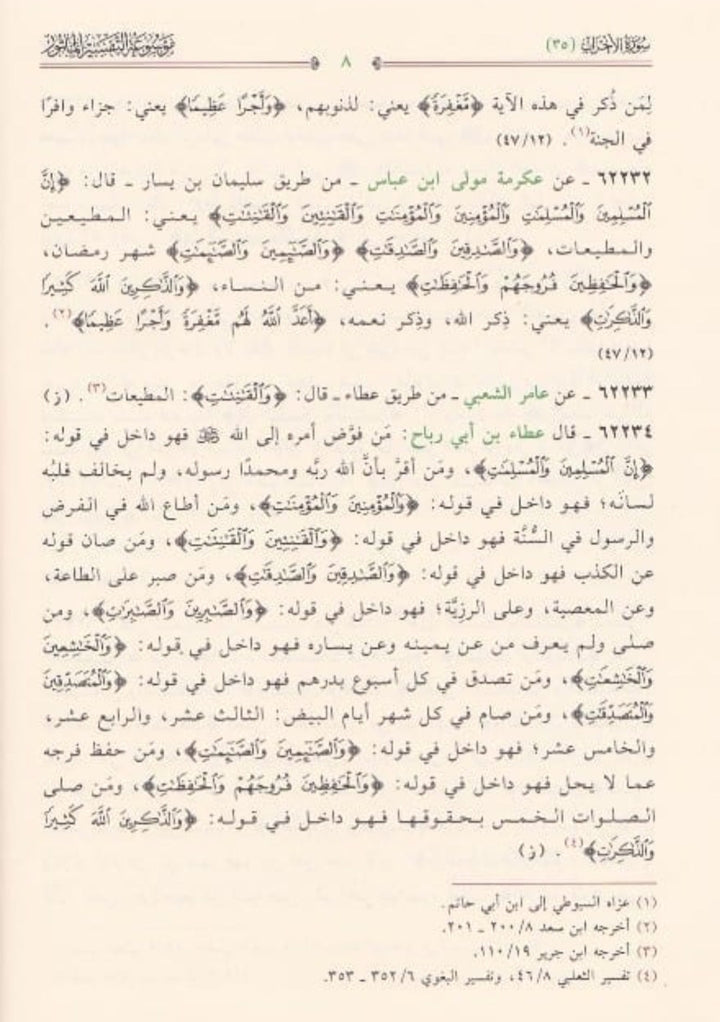 سُورَةُ الأَحْزَابِ (٣٥)
٨
مَوْسُوعَةُ التَّفْسِيرِ الْمَأْثُورِ
لِمَن ذُكر في هذه الآية ﴿مَّغْفِرَةً﴾ يعني: لذنوبهم، ﴿وَأَجْرًا عَظِيمًا﴾ يعني: جزاء وافرًا
في الجنة(١). (٤٧/١٢)
٦٢٢٣٢ ـ عن عكرمة مولى ابن عباس ـ من طريق سليمان بن يسار ـ قال: ﴿إِنَّ
ٱلْمُسْلِمِينَ وَٱلْمُسْلِمَٰتِ وَٱلْمُؤْمِنِينَ وَٱلْمُؤْمِنَٰتِ وَٱلْقَٰنِتِينَ وَٱلْقَٰنِتَٰتِ﴾ يعني: المطيعين
والمطيعات، ﴿وَٱلصَّٰدِقِينَ وَٱلصَّٰدِقَٰتِ﴾ ﴿وَٱلصَّٰٓئِمِينَ وَٱلصَّٰٓئِمَٰتِ﴾ شهر رمضان،
﴿وَٱلْحَٰفِظِينَ فُرُوجَهُمْ وَٱلْحَٰفِظَٰتِ﴾ يعني: من النساء، ﴿وَٱلذَّٰكِرِينَ ٱللَّهَ كَثِيرًا
وَٱلذَّٰكِرَٰتِ﴾ يعني: ذِكر الله، وذِكر نعمه، ﴿أَعَدَّ ٱللَّهُ لَهُم مَّغْفِرَةً وَأَجْرًا عَظِيمًا﴾(٢).
(٤٧/١٢)
٦٢٢٣٣ ـ عن عامر الشعبي ـ من طريق عطاء ـ قال: ﴿وَٱلْقَٰنِتَٰتِ﴾: المطيعات(٣). (ز)
٦٢٢٣٤ ـ قال عطاء بن أبي رباح: مَن فوَّض أمره إلى الله ﷻ فهو داخل في قوله:
﴿إِنَّ ٱلْمُسْلِمِينَ وَٱلْمُسْلِمَٰتِ﴾، ومَن أقرَّ بأنَّ الله ربَّه ومحمدًا رسوله، ولم يخالف قلبُه
لسانَه؛ فهو داخل في قوله: ﴿وَٱلْمُؤْمِنِينَ وَٱلْمُؤْمِنَٰتِ﴾، ومَن أطاع الله في الفرض
والرسول في السُّنَّة فهو داخل في قوله: ﴿وَٱلْقَٰنِتِينَ وَٱلْقَٰنِتَٰتِ﴾، ومَن صان قوله
عن الكذب فهو داخل في قوله: ﴿وَٱلصَّٰدِقِينَ وَٱلصَّٰدِقَٰتِ﴾، ومَن صبر على الطاعة،
وعن المعصية، وعلى الرزِيَّة؛ فهو داخل في قوله: ﴿وَٱلصَّٰبِرِينَ وَٱلصَّٰبِرَٰتِ﴾، ومن
صلى ولم يعرف من عن يمينه وعن يساره فهو داخل في قوله: ﴿وَٱلْخَٰشِعِينَ
وَٱلْخَٰشِعَٰتِ﴾، ومَن تصدق في كل أسبوع بدرهم فهو داخل في قوله: ﴿وَٱلْمُتَصَدِّقِينَ
وَٱلْمُتَصَدِّقَٰتِ﴾، ومَن صام في كل شهر أيام البيض: الثالث عشر، والرابع عشر،
والخامس عشر؛ فهو داخل في قوله: ﴿وَٱلصَّٰٓئِمِينَ وَٱلصَّٰٓئِمَٰتِ﴾، ومَن حفظ فرجه
عما لا يحل فهو داخل في قوله: ﴿وَٱلْحَٰفِظِينَ فُرُوجَهُمْ وَٱلْحَٰفِظَٰتِ﴾، ومَن صلى
الصلوات الخمس بحقوقها فهو داخل في قوله: ﴿وَٱلذَّٰكِرِينَ ٱللَّهَ كَثِيرًا
وَٱلذَّٰكِرَٰتِ﴾(٤). (ز)
(١) عزاه السيوطي إلى ابن أبي حاتم.
(٢) أخرجه ابن سعد ٢٠٠/٨ ـ ٢٠١.
(٣) أخرجه ابن جرير ١١٠/١٩.
(٤) تفسير الثعلبي ٤٦/٨، وتفسير البغوي ٣٥٢/٦ ـ ٣٥٣.